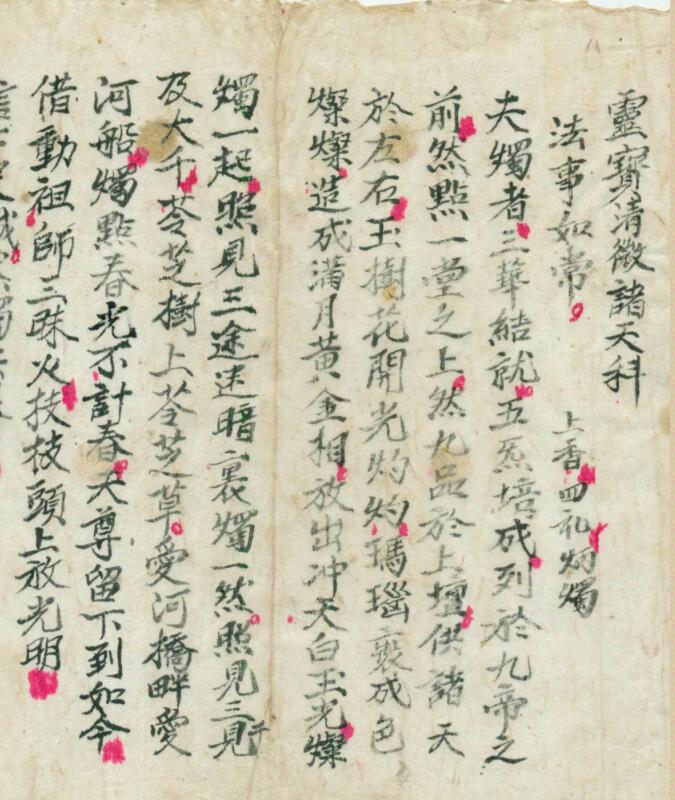 靈寶清微諸天科
法事如常 上香四礼炳燭
夫燭者三華結就五炁培成列於九帝之
前然點一堂之上然九品於上壇供諸天
於左右玉樹花開光灼灼瑪瑙裵成色
燦燦造成滿月黃金相放出冲天白玉光燦
燭一起照見三途迷暗裏燭一然照見三見千
及大千苓芝樹上苓芝草愛河橋畔愛
河船燭點春光不計春天尊留下到如今
借動祖師三昧火技枝頭上放光明